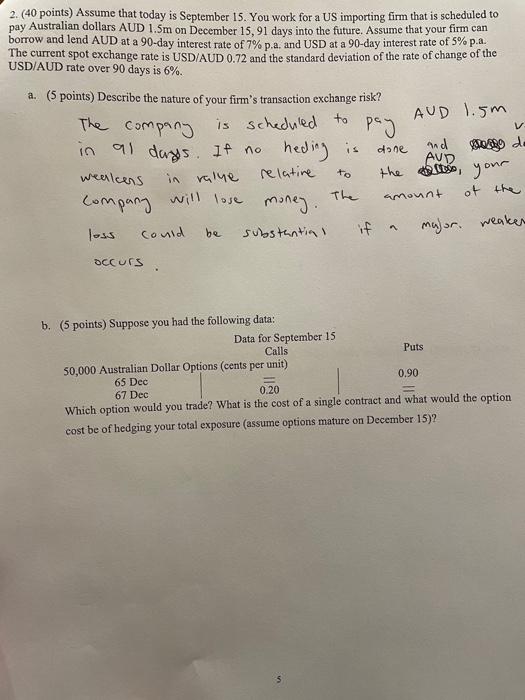 2. (40 points) Assume that today is September 15. You work for a US importing firm that is scheduled to
pay Australian dollars AUD 1.5m on December 15, 91 days into the future. Assume that your firm can
borrow and lend AUD at a 90-day interest rate of 7% p.a. and USD at a 90-day interest rate of 5% p.a.
The current spot exchange rate is USD/AUD 0.72 and the standard deviation of the rate of change of the
USD/AUD rate over 90 days is 6%.
a. (5 points) Describe the nature of your firm's transaction exchange risk?
The company is scheduled to pay AUD 1.5m
in 91 days. If no heding is done and
weakens in value relative to the AUD, your
company will lose money. The amount of the
loss could be substantial if a major. weaken
occurs.
b. (5 points) Suppose you had the following data:
Data for September 15
Calls Puts
50,000 Australian Dollar Options (cents per unit)
65 Dec = 0.90
67 Dec 0.20 =
Which option would you trade? What is the cost of a single contract and what would the option
cost be of hedging your total exposure (assume options mature on December 15)?
5